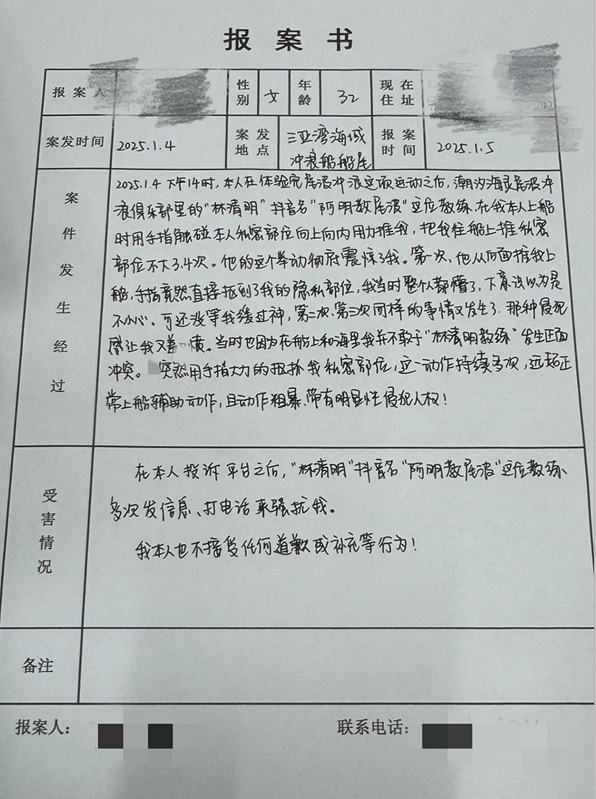 报案书
报案人 性别 女 年龄 32 现在住址
案发时间 2025.1.4 案发地点 三亚湾海域冲浪船船尾 报案时间 2025.1.5
案件发生经过
2025.1.4 下午14时,本人在体验完尾波冲浪这项运动之后,潮汐海浪尾波冲
浪俱乐部里的“林清明”抖音名“阿明教尾波”这位教练,在我本人上船
时用手指触碰本人私密部位向上向内用力推我,把我往船上推私密
部位不下3.4次。他的这个举动彻底震惊了我。第一次,他从后面推我上
船,手指竟然直接抠到了我的隐私部位,我当时整个人都懵了,下意识以为是
不小心。可还没等我缓过神,第二次、第三次同样的事情又发生了,那种侵犯
感让我又羞 愤。当时也因为在船上和海里我并不敢于“林清明教练”发生正面
冲突。 突然用手指大力的抠扑我私密部位,这一动作持续多次,远超正
常上船辅助动作,且动作粗暴、带有明显性侵犯人权!
受害情况
在本人投诉平台之后,“林清明”抖音名“阿明教尾波”这位教练、
多次发信息、打电话来骚扰我。
我本人也不接受任何道歉或补充等行为!
备注
报案人: 联系电话: